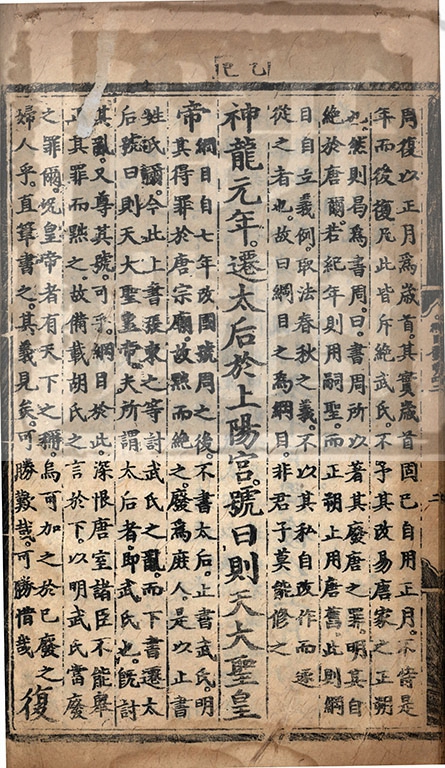 周復以正月為歲首。其實歲首固已自用正月。不待是
年而後復。凡此皆斥絶武氏。不予其改易唐家之正朔
也。然則曷為書周。曰。書周所以著其廢唐之罪。明其自
絶於唐爾。若紀年則用嗣聖。而正朔上用唐舊。此則綱
目自立義例。取法春秋之義。不以其私自改作而遂
從之者也。故曰綱目之為綱目。非君子莫能修之
神龍元年。遷太后於上陽宮。號曰則天大聖皇
帝
綱目自七年改國號周之後。不書太后。止書武氏。明
其得罪於唐宗廟。故黜而絶之。廢為庶人。是以止書
姓氏爾。今此上書張柬之等討武氏之亂。而下書遷太
后號曰則天大聖皇帝。夫所謂太后者。即武氏也。既討
其亂。又尊其號。可乎。綱目於此。深恨唐室諸臣不能舉
正其罪而黜之。故備載胡氏之言於下。以明武氏當廢
之罪爾。況皇帝者有天下之稱。烏可加之於已廢之
婦人乎。直筆書之。其義見矣。可勝歎哉。可勝惜哉
復